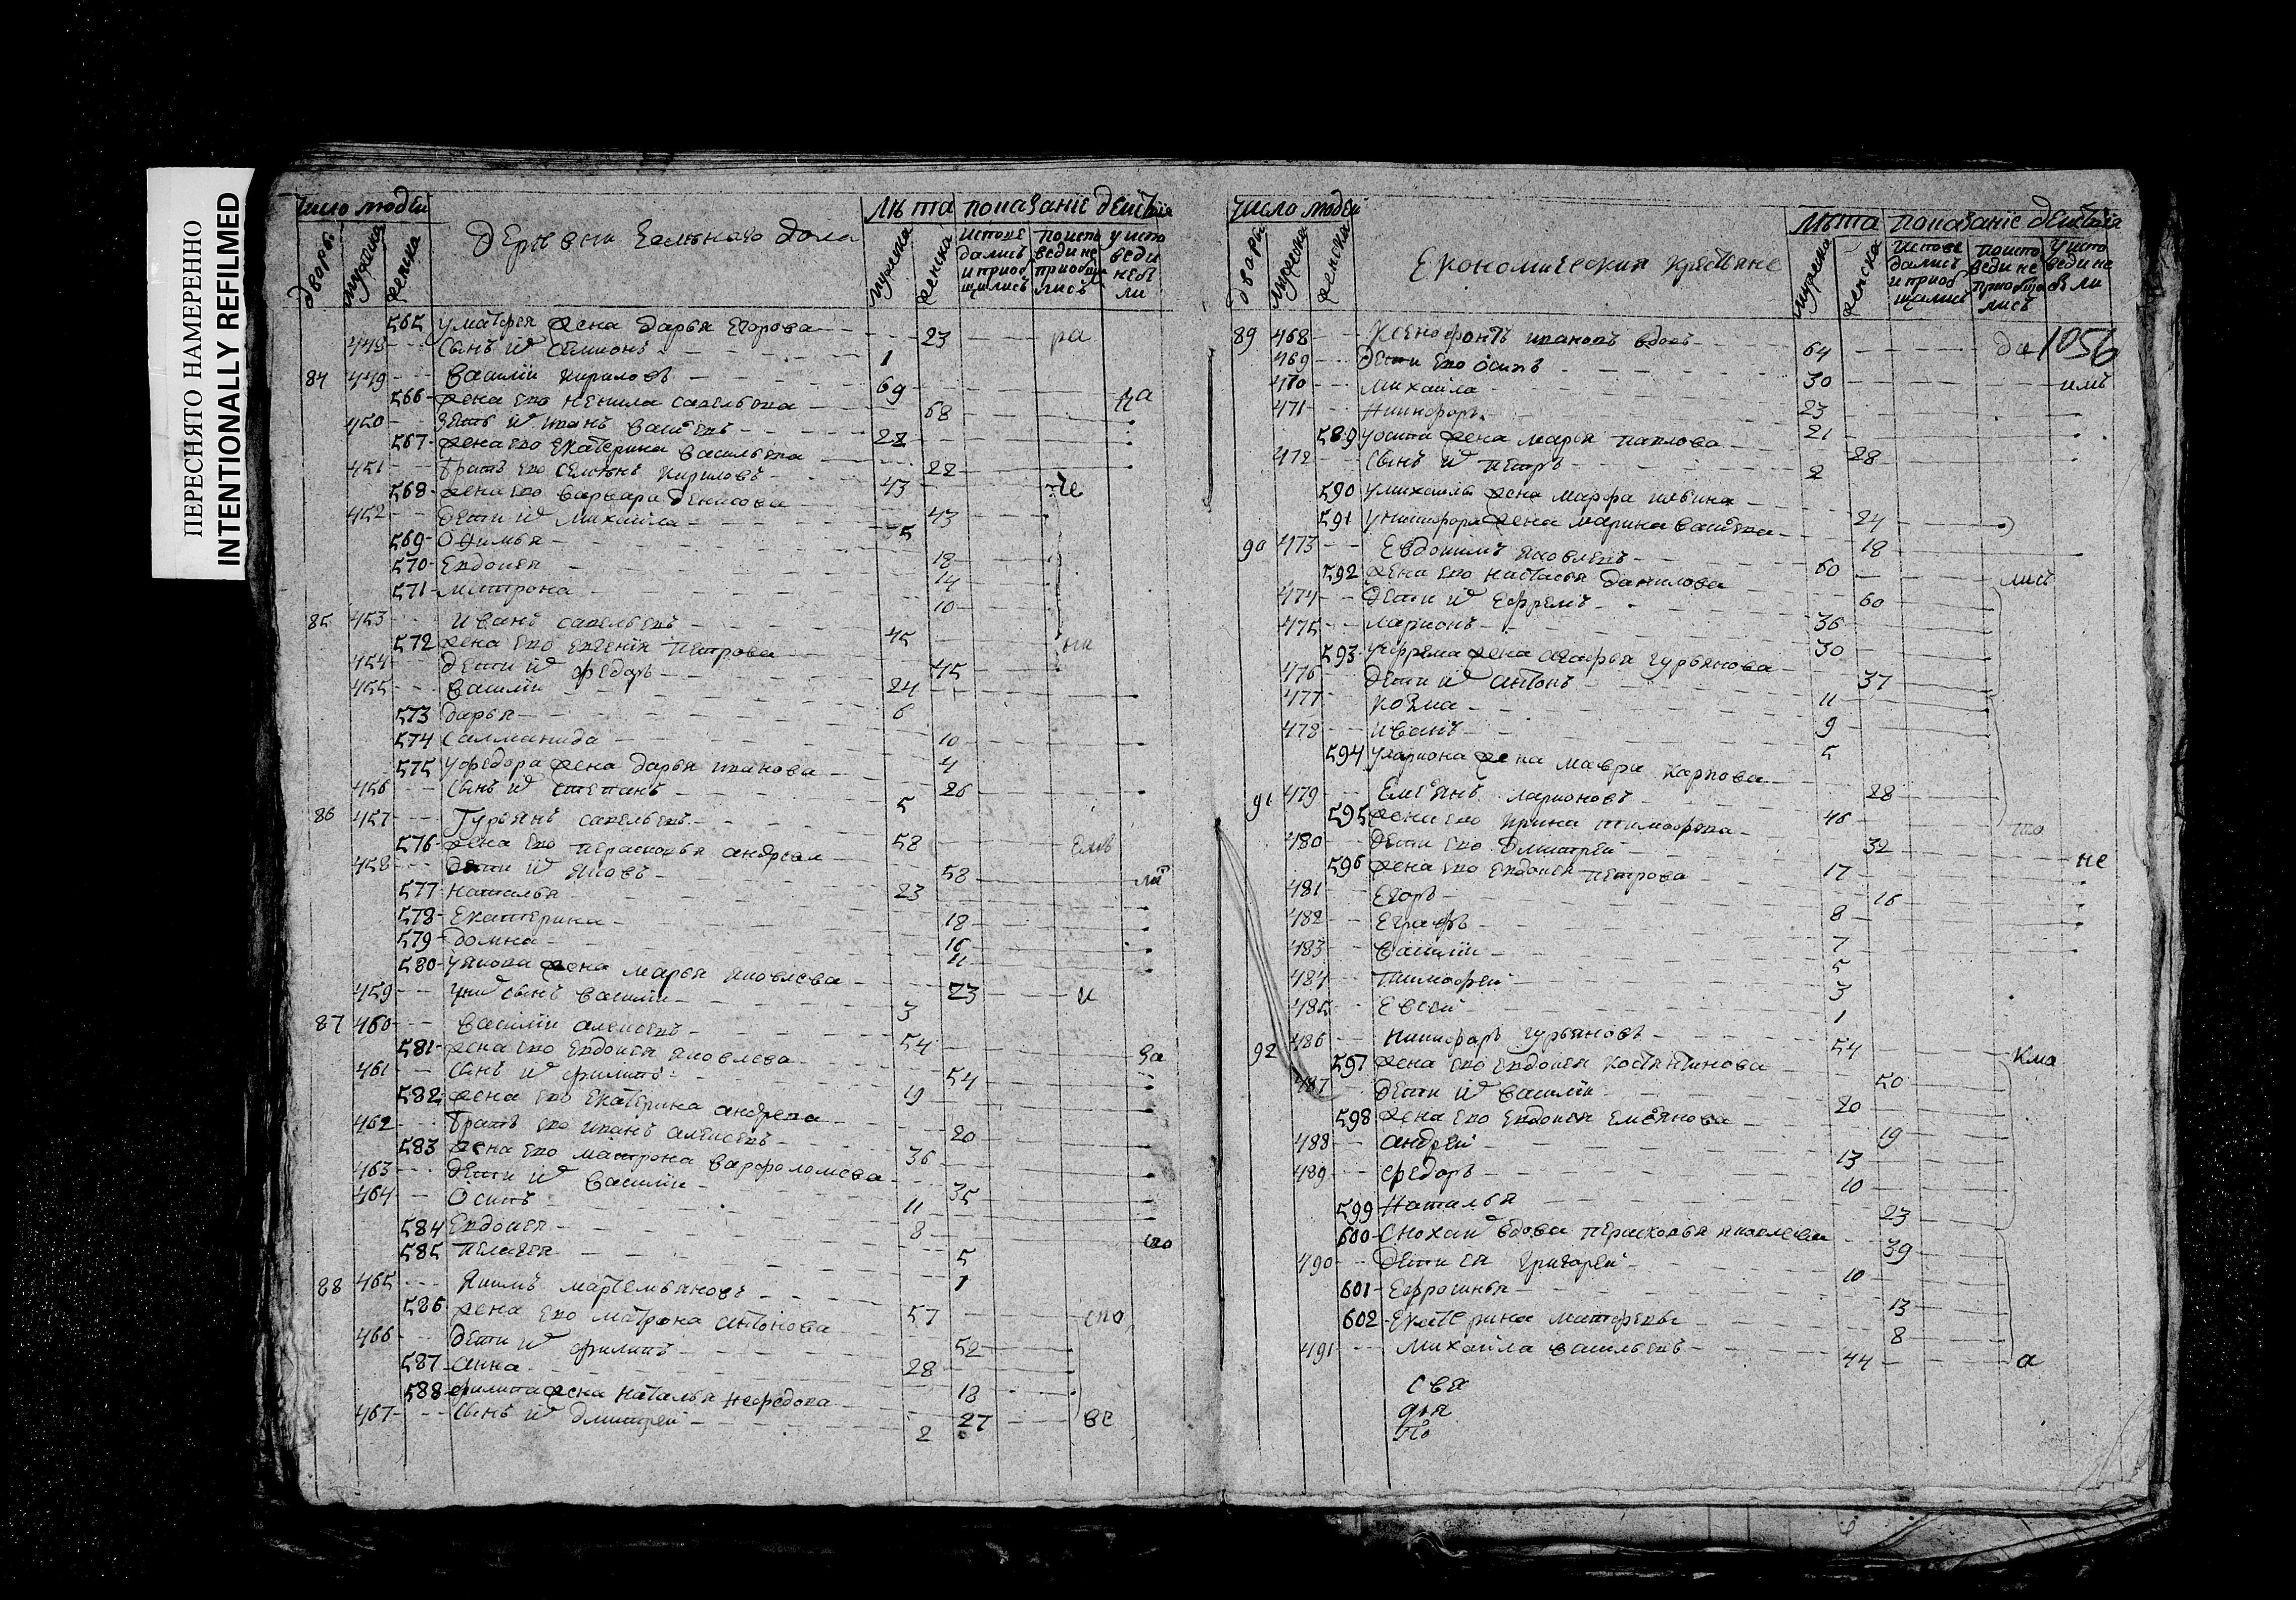 ПЕРЕСНЯТО НАМЕРЕННО
INTENTIONALLY REFILMED
число людей
дворы
мужеска
женска
деревни
дола
лѣта
показанiе действа
мужеска
женска
испове дались и приоб щились
по испо веди не приобща лись
у испо веди не бы ли
565 у матфея жена дарья Егорова 23 ра
449 сынъ их симионъ 1
84 449 василiи кириловъ 69
566 жена ево ненила савельева 68 на
450 зять их иванъ васильевъ 22
567 жена ево Екатерина васильева 22
451 братъ ево семионъ кириловъ 43 че
568 жена ево варвара денисова 43
452 дети их михаила 35
569 Офимья 18
570 Евдокея 14
571 матрона 10
85 453 иванъ савельевъ 45
572 жена ево Евгенiя петрова 45
454 дети их федоръ 24
455 василiи 6
573 дарья 10
574 саломанида 4
575 у федора жена дарья иванова 26
456 сынъ их степанъ 5
86 457 Гурьянъ савельевъ 58
576 жена ево прасковья андреева 58
458 дети их яковъ 23
577 наталья 18
578 Екатерина 16
579 домна 11
580 у якова жена марья яковлева 23 и
459 у них сынъ василiи 3
87 460 василiи алексеевъ 54
581 жена ево Евдокея яковлева 54 за
461 сынъ их филипъ 19
582 жена ево Екатерина андреева 20
462 братъ ево иванъ алексеевъ 36
583 жена ево матрона варфоломеева 35
463 дети их василiи 11
464 Осипъ 8
584 Евдокея 5
585 пелагея 1
88 465 якимъ мартемьяновъ 57
586 жена ево матрона антонова 52
466 дети их филипъ 28
587 анна 18
588 филипа жена наталья нефедова 27 ве
467 сынъ их дмитреи 2
число людей
дворы
мужеска
женска
Економическия крестьяне
лѣта
показанiе действа
мужеска
женска
испове дались и приоб щились
по испо веди не приобща лись
у испо веди не бы ли
1056
89 468 Ксенофонтъ ивановъ вдовъ 64 да
469 дети ево осипъ 30
470 михаила 23
471 никифоръ 21
589 у осипа жена марья павлова 28
472 сынъ их петръ 2
590 у михаила жена марфа 24
591 у никифора жена марина васильева 18
90 473 Евдокимъ яковлевъ 60
592 жена ево настасья данилова 60
474 дети их ефремъ 36
475 ларионъ 30
593 у ефрема жена агафья гурьянова 37
476 дети их антонъ 11
477 козма 9
478 иванъ 5
594 у лариона жена мавра карпова 28
91 479 Емельянъ ларионовъ 46
595 жена ево ирина тимофеева 32
480 дети ево дмитреи 17 не
596 жена ево Евдокея петрова 16
481 Егоръ 8
482 Еграфъ 7
483 василiи 5
484 тимофеи 3
485 Евсеи 1
92 486 никифоръ гурьяновъ 54
597 жена ево Евдокея костянтинова 50
487 дети их василiи 20
598 жена ево Евдокея Емельянова 19
488 андреи 13
489 федоръ 10
599 наталья 23
600 сноха их вдова прасковья яковлева 39
490 дети ея григореи 10
601 Ефросинья 13
602 Екатерина матфеевы 8
491 михаила васильевъ 44 а
свя